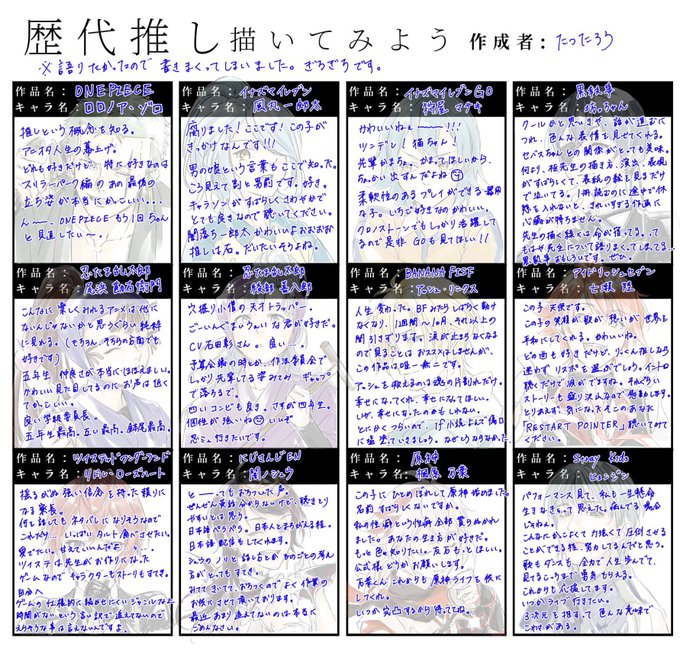 歴代推し描いてみよう 作成者: たつたろう
※語りたかったので書きまくってしまいました。ぎちぎちです。
作品名: ONE PIECE
キャラ名: ロロノア・ゾロ
推しという概念を知る。
アニオタ人生の幕上げ。
どれも好きだけど、特に好きなのは
スリラーバーク編のあの最後の
立ち姿が本当にかっこいい...
ん〜、ONE PIECEもう1回ちゃん
と見直したい〜。
作品名: イナズマイレブン
キャラ名: 風丸一郎太
闇りました！ここです！この子が
きっかけなんです!!!
男の娘という言葉もここで知った。
こう見えて割と男前です。好き。
キャラソンがすばらしくさわやかで
とても良きなので聴いてください。
闇落ち一郎太かわいよおおおお
推しは石。だいたいそうよね。
作品名: イナズマイレブンGO
キャラ名: 狩屋マサキ
かわいいねぇ〜〜〜!!!
ツンデレ！猫ちゃん！
先輩がまちゃ。かまってほしいから、
ちょっかい出すんだよね
柔軟性のあるプレイができる器用
な子。いちご好きなのかわいい。
クロノストーンでもしっかり活躍して
るので是非GOも見てほしい!!
作品名: 黒執事
キャラ名: 坊っちゃん
クールかと思いきや、話が進むに
つれ、色んな表情を見せてくれる。
セバスちゃんとの関係がとても美味。
何より、枢先生の描き方、演出、表現
がすばらしくて、表紙の絵を見るだけ
で泣いてる。1冊読むのに途中で休
憩を入れないと、きれいすぎる作画に
心臓が持ちません。
先生の描く線には命が宿ってる。って
もはや先生について語りまくってしまってる...
黒執事おもしろいです。ぜひ。
作品名: 忍たま乱太郎
キャラ名: 尾浜勘右衛門
こんなに楽しくみれるアニメは他に
ないんじゃないかと思うくらい純粋
に見れる。(もちろん、そちらの方面でも
好きです)
五年生、仲良さが本当にほほえましい。
かわいい見た目してるのにお声は低く
てかっこいい。
良い学級委員長。
五年生最高。五い最高。鉢尾最高。
作品名: 忍たま乱太郎
キャラ名: 綾部喜八郎
穴掘り小僧の天才トラッパー。
ごーいんぐまいうぇいな君が好きだ。
CV.石田彰さん。良い...
予算会議の時とか、作法委員会で
しっかり先輩してる姿みてみ…ギャップ
で落ちるで。
四いコンビも良き。さすが四年生。
個性が強いね いいぞ
忍ミュ行きたいです。
作品名: BANANA FISH
キャラ名: アッシュ・リンクス
人生変わった。BFみたらしばらく動け
なくなり、1週間〜10日、それ以上の
間引きずります。涙が止まらなくなる
ので見ることはおススメしませんが、
この作品は唯一無二です。
アッシュを救えるのは魂の片割れだけ。
幸せになってくれ、幸せになってほしい。
いぜ、幸せになったのかもしれない。
とにかく小説よんで傷口
に塩塗っていきましょう。なぜならうちなあた
作品名: アイドリッシュセブン
キャラ名: 七瀬陸
この子、天使です。
この子の笑顔が歌が想いが世界を
平和にしてくれる。かわいいね。
どの曲も好きだけど、りっくん推しなら
迷わずリスポを選ぶでしょう。イントロ
聴くだけで涙がでますね。それくらい
ストーリーも盛り沢山なので感動します。
とりあえず、気になったそこのあなた
「RESTART POiNTER」聴いてみて
ください。
作品名: ツイステッドワンダーランド
キャラ名: リドル・ローズハート
揺るがぬ強い信念を持った頼りに
なる寮長。
何を話してもネタバレになりそうなので
これだけ...いっぱいタルト食べさせたい。
愛でたい。甘えていいんだよ...
ツイステは先生がお作りになった
ゲームなのでキャラクターもストーリーもすてき。
ゲームの仕様的に編めせにくいジャンルな上
時間がないという言い訳で進えてないので
えらそうな事は言えないんですよ。
作品名: にじさんじEN
キャラ名: 闇ノシュウ
とーーってもおちつした声。
ぜんぜん英語分からないけど、聴きとり
やすいと思う。
日本語ぺらぺら。日本人とまちがえる程。
日本語配信もしてくれます。
シュウノノリと話し方とかものごとの考え
方がとってもすてき。
みててきいてて、おちつくのでよく作業の
お供にさせて頂いております。
最近あまり追えてないのは本当に
ごめんなさい。
作品名: 原神
キャラ名: 楓原万葉
この子にひとめぼれして原神始めました。
名前すばらしくないですか。
私の性癖という性癖全部買らぬかれ
ました。あなたの生き方が好きだ。
もっと色々知りたい。友石もっとほしい。
公式様、どうかお願いします。
万葉くんこれからも原神ライフを供に
してくれ。
いつか完凸するから待っててね。
作品名: Stray Kids
キャラ名: ヒョンジン
パフォーマンス見て、私も一生懸命
生きなきゃって思えた。病んでる場合
じゃねん。
こんなにかっこよくて力強くて圧倒させる
ことができる程、努力してるんだと思う。
歌もダンスも、全力で人生歩んでて、
見てるこっちまで勇気もらえる。
これからも応援してます。
いつかライブ行きたい。
3次元を推すって、色んな意味で
こわさがある。